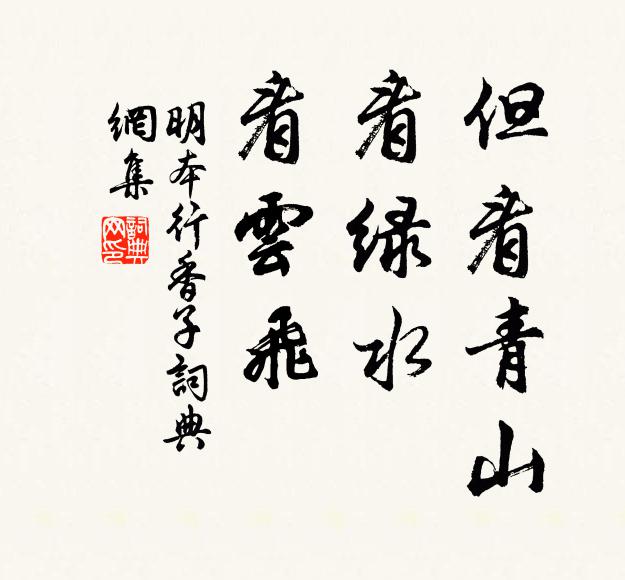 但看青山
看綠水
看雲飛
明本行香子詞典
網集
詞典
网印